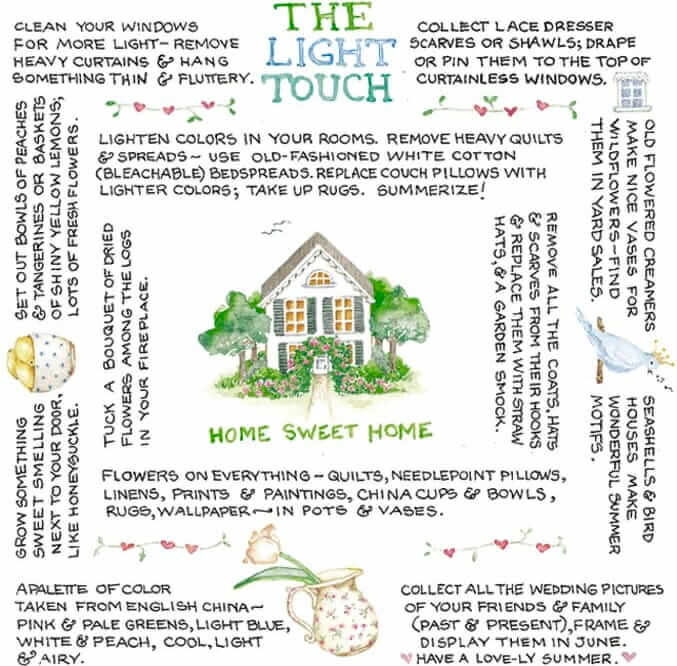 THE
LIGHT
TOUCH
CLEAN YOUR WINDOWS
FOR MORE LIGHT- REMOVE
HEAVY CURTAINS & HANG
SOMETHING THIN & FLUTTERY.
COLLECT LACE DRESSER
SCARVES OR SHAWLS; DRAPE
OR PIN THEM TO THE TOP OF
CURTAINLESS WINDOWS.
SET OUT BOWLS OF PEACHES
& TANGERINES OR BASKETS
OF SHINY YELLOW LEMONS;
LOTS OF FRESH FLOWERS.
LIGHTEN COLORS IN YOUR ROOMS. REMOVE HEAVY QUILTS
& SPREADS~ USE OLD-FASHIONED WHITE COTTON
(BLEACHABLE) BEDSPREADS. REPLACE COUCH PILLOWS WITH
LIGHTER COLORS; TAKE UP RUGS. SUMMERIZE!
OLD FLOWERED CREAMERS
MAKE NICE VASES FOR
WILDFLOWERS~FIND
THEM IN YARD SALES.
TUCK A BOUQUET OF DRIED
FLOWERS AMONG THE LOGS
IN YOUR FIREPLACE.
REMOVE ALL THE COATS, HATS
& SCARVES FROM THEIR HOOKS
& REPLACE THEM WITH STRAW
HATS, & A GARDEN SMOCK.
HOME SWEET HOME
GROW SOMETHING
SWEET SMELLING
NEXT TO YOUR DOOR,
LIKE HONEYSUCKLE.
SEASHELLS & BIRD
HOUSES MAKE
WONDERFUL SUMMER
MOTIFS.
FLOWERS ON EVERYTHING~ QUILTS, NEEDLEPOINT PILLOWS,
LINENS, PRINTS & PAINTINGS, CHINA CUPS & BOWLS,
RUGS, WALLPAPER~IN POTS & VASES.
A PALETTE OF COLOR
TAKEN FROM ENGLISH CHINA~
PINK & PALE GREENS, LIGHT BLUE,
WHITE & PEACH, COOL, LIGHT
& AIRY.
COLLECT ALL THE WEDDING PICTURES
OF YOUR FRIENDS & FAMILY
(PAST & PRESENT), FRAME &
DISPLAY THEM IN JUNE.
HAVE A LOVE-LY SUMMER.